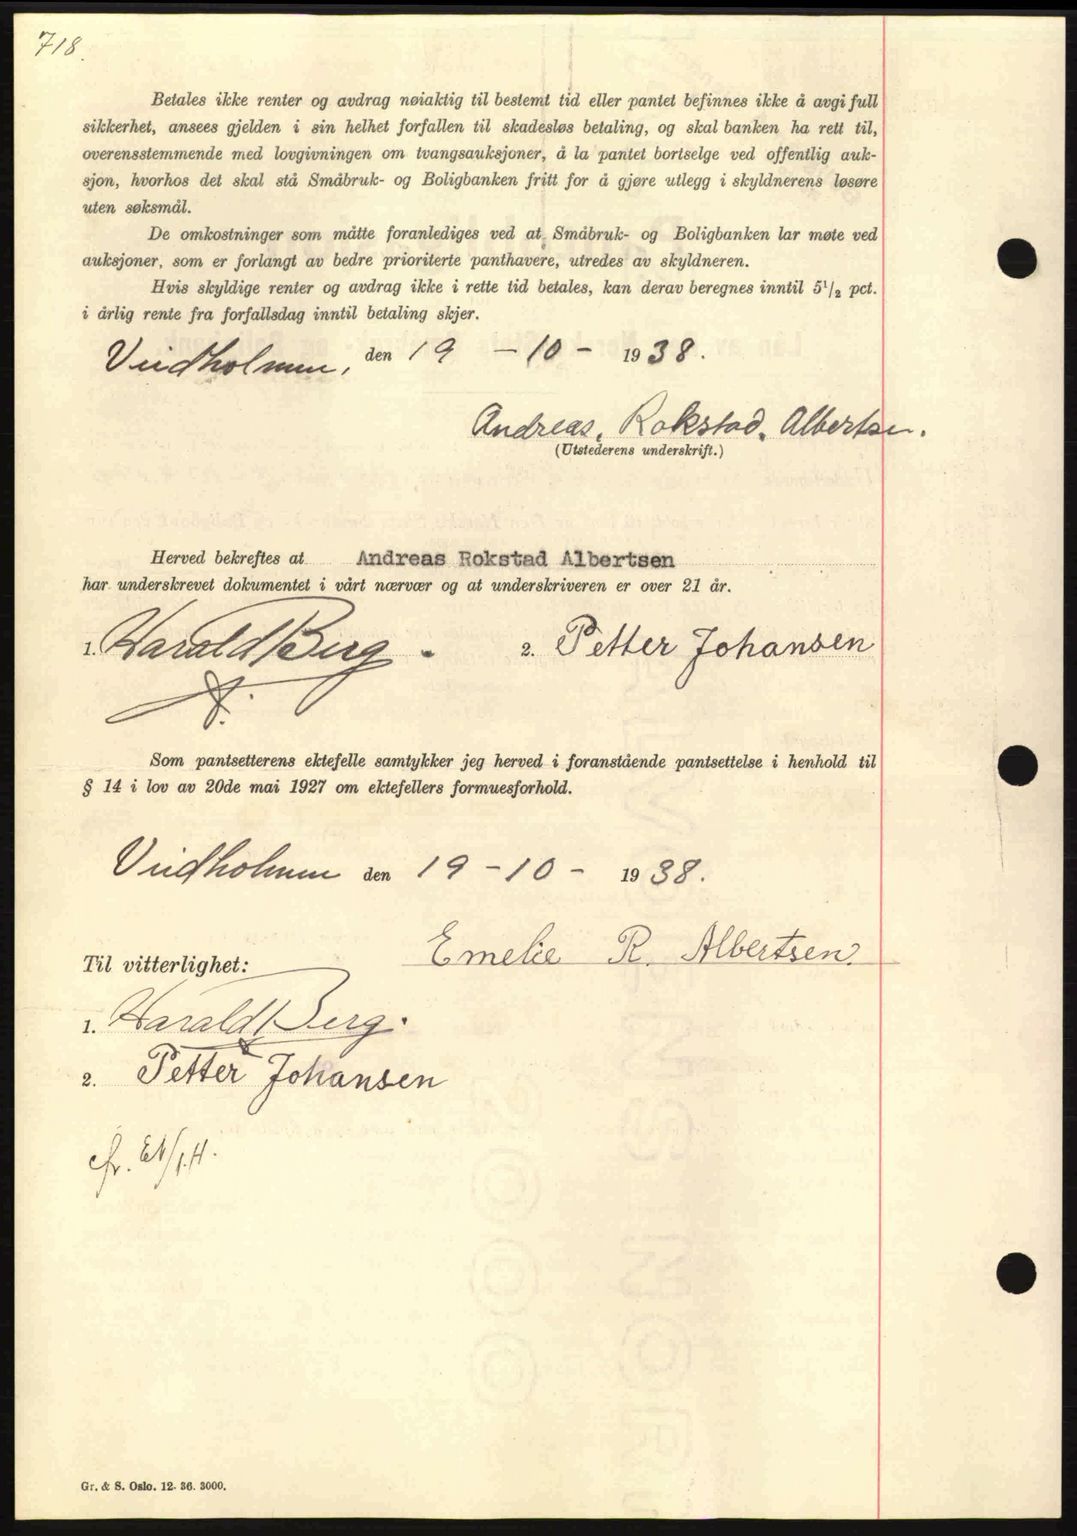 718.
Betales ikke renter og avdrag nøiaktig til bestemt tid eller pantet befinnes ikke å avgi full
sikkerhet, ansees gjelden i sin helhet forfallen til skadesløs betaling, og skal banken ha rett til,
overensstemmende med lovgivningen om tvangsauksjoner, å la pantet bortselge ved offentlig auk-
sjon, hvorhos det skal stå Småbruk- og Boligbanken fritt for å gjøre utlegg i skyldnerens løsøre
uten søksmål.
De omkostninger som måtte foranlediges ved at Småbruk- og Boligbanken lar møte ved
auksjoner, som er forlangt av bedre prioriterte panthavere, utredes av skyldneren.
Hvis skyldige renter og avdrag ikke i rette tid betales, kan derav beregnes inntil 5 1/2 pct.
i årlig rente fra forfallsdag inntil betaling skjer.
Vindholmen, den 19 - 10 - 1938.
Andreas. Rokstad. Albertsen.
(Utstederens underskrift.)
Herved bekreftes at Andreas Rokstad Albertsen
har underskrevet dokumentet i vårt nærvær og at underskriveren er over 21 år.
1. Harald Berg. 2. Petter Johansen
Som pantsetterens ektefelle samtykker jeg herved i foranstående pantsettelse i henhold til
§ 14 i lov av 20de mai 1927 om ektefellers formuesforhold.
Vindholmen den 19 - 10 - 1938.
Emelie R. Albertsen.
Til vitterlighet:
1. Harald Berg.
2. Petter Johansen
Gr. & S. Oslo. 12. 36. 3000.